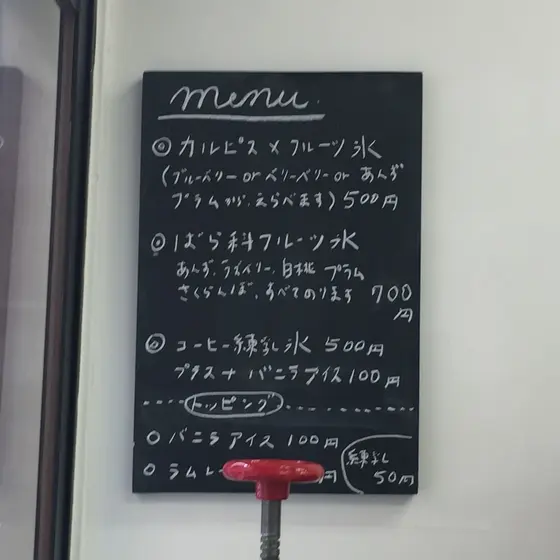 menu
◎ カルピス×フルーツ氷
(ブルーベリー or ベリーベリー or あんず
プラムから、えらべます) 500円
◎ ばら科フルーツ氷
あんず、ラズベリー、白桃、プラム
さくらんぼ、すべてのります 700
円
◎ コーヒー練乳氷 500円
プラス+バニラアイス100円
トッピング
○ バニラアイス 100円
○ ラムレー 円
練乳
50円